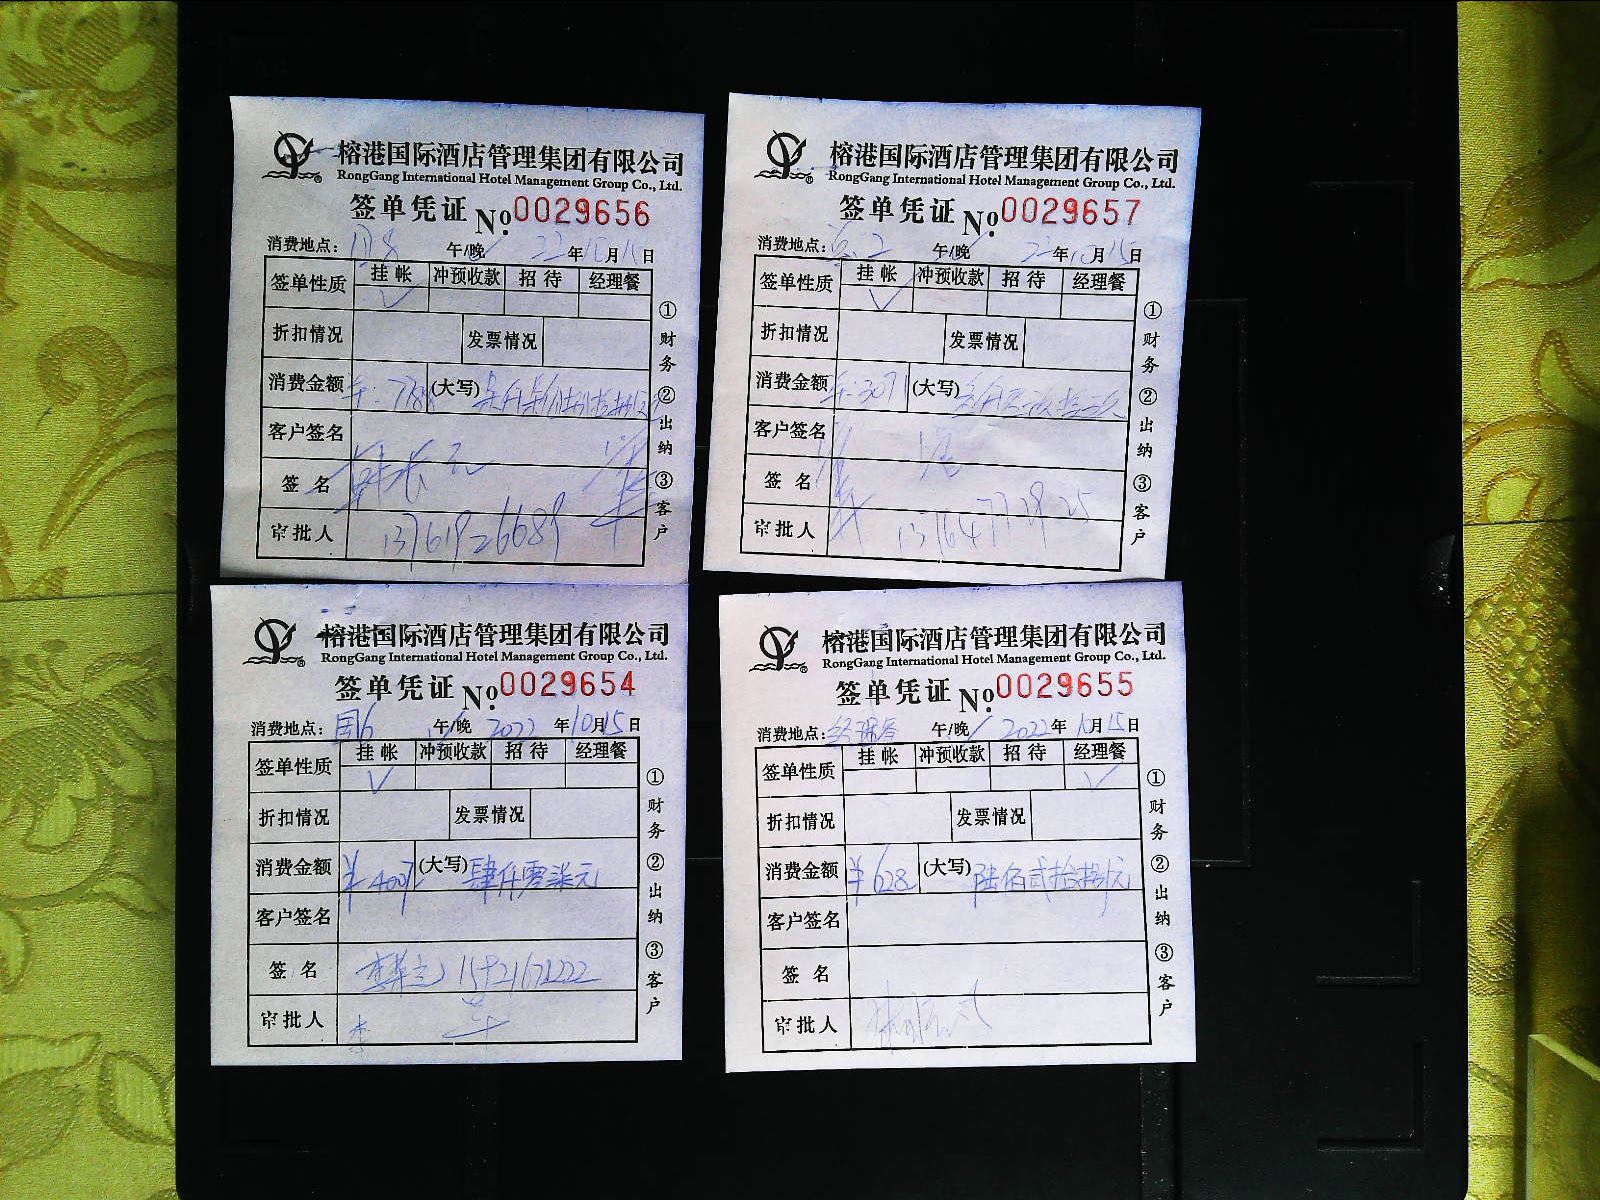 榕港国际酒店管理集团有限公司
RongGang International Hotel Management Group Co., Ltd.
签单凭证 No. 0029656
消费地点: 午/晚 22年10月15日
签单性质 挂帐 冲预收款 招待 经理餐
✓
折扣情况 发票情况
消费金额 (大写)
客户签名
签名
审批人 13761926689
①财务 ②出纳 ③客户
榕港国际酒店管理集团有限公司
RongGang International Hotel Management Group Co., Ltd.
签单凭证 No. 0029657
消费地点: 午/晚 22年10月15日
签单性质 挂帐 冲预收款 招待 经理餐
✓
折扣情况 发票情况
消费金额 (大写)
客户签名
签名
审批人 13764772925
①财务 ②出纳 ③客户
榕港国际酒店管理集团有限公司
RongGang International Hotel Management Group Co., Ltd.
签单凭证 No. 0029654
消费地点: 国6 午/晚 2022年10月15日
签单性质 挂帐 冲预收款 招待 经理餐
✓
折扣情况 发票情况
消费金额 ¥4007 (大写) 肆仟零柒元
客户签名
签名
审批人
①财务 ②出纳 ③客户
榕港国际酒店管理集团有限公司
RongGang International Hotel Management Group Co., Ltd.
签单凭证 No. 0029655
消费地点: 经理餐 午/晚 2022年10月15日
签单性质 挂帐 冲预收款 招待 经理餐
✓
折扣情况 发票情况
消费金额 ¥628 (大写) 陆佰贰拾捌元
客户签名
签名
审批人
①财务 ②出纳 ③客户